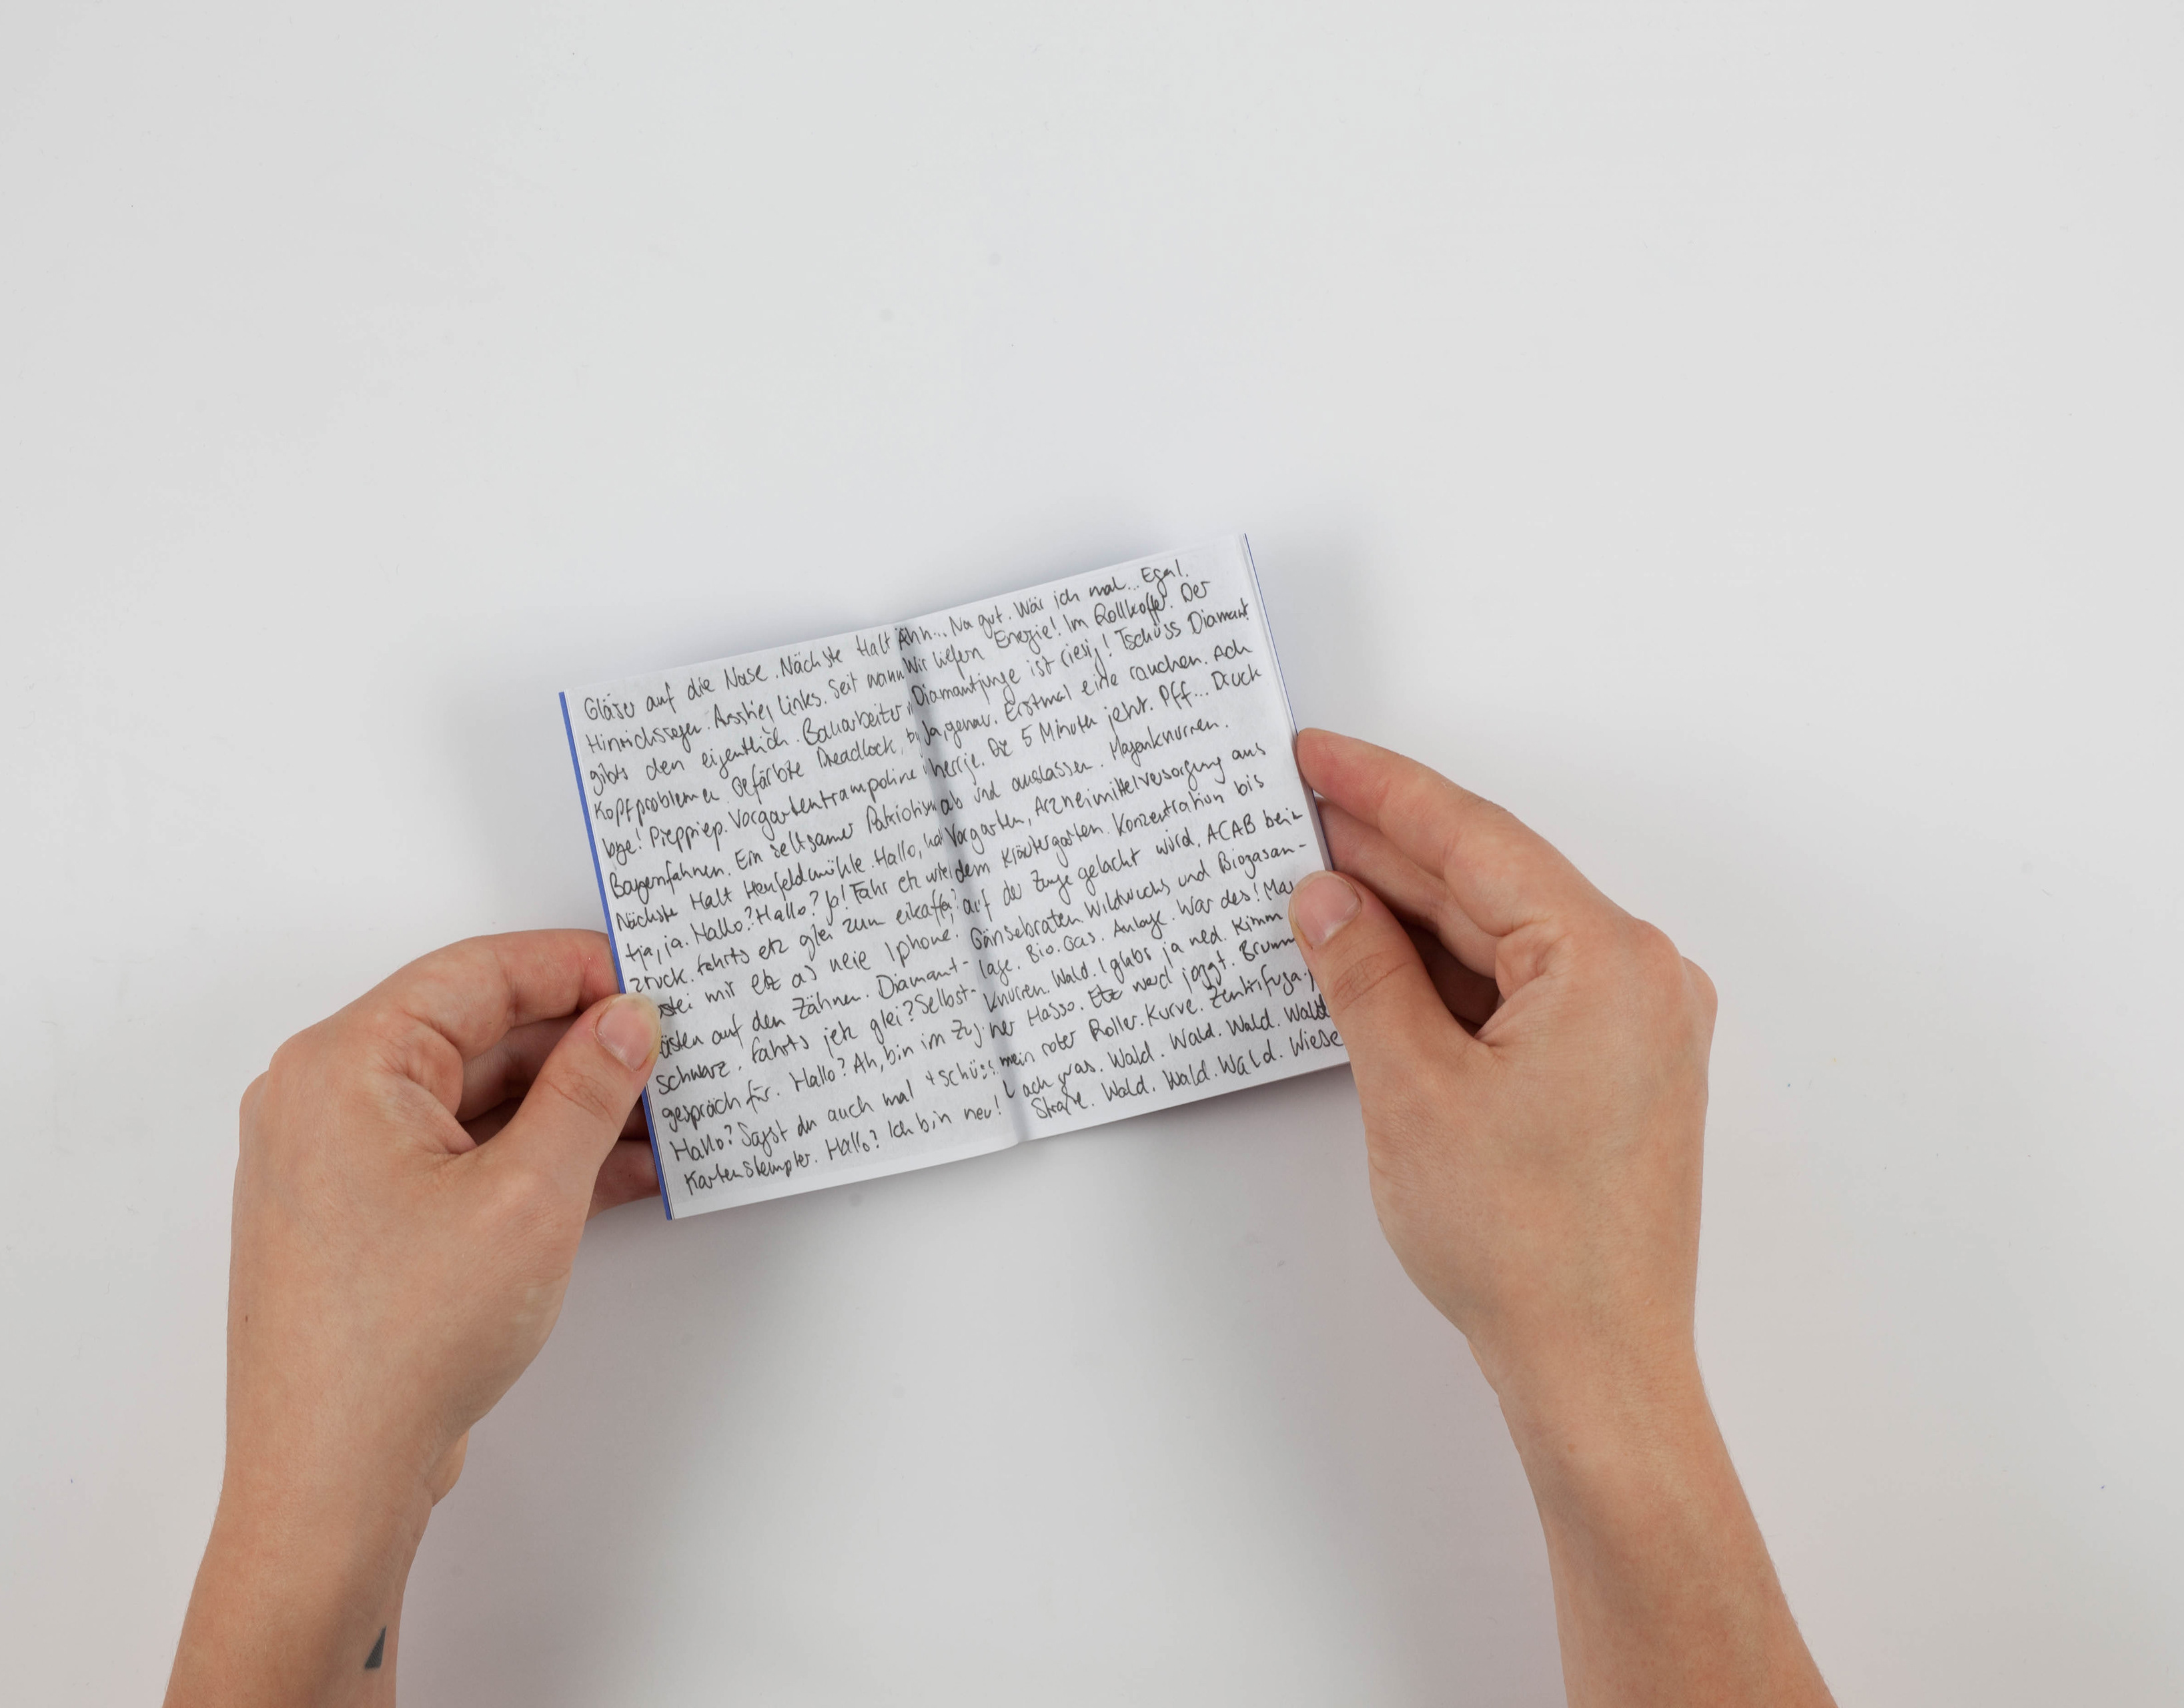 Gläser auf die Nase. Nächste Halt
Hinrichssegen. Ausstieg Links. Seit wann
gibts den eigentlich. Bauarbeiter
Kopfprobleme. Gefärbte Dreadlock,
bye! Pieppiep. Vorgartentrampoline
Bayernfahnen. Ein seltsamer Patriotism
Nächste Halt Heufeldmühle. Hallo,
tja, ja. Hallo? Hallo? Ja! Fahr etz
zruck. Fahrts etz glei zum eikaffa?
mir etz as neie Iphone.
auf den Zähnen. Diamant-
schwarz. Fahrts jetz glei? Selbst-
gespräch für. Hallo? Ah, bin im Zug.
Hallo? Sagst du auch mal tschüss
Kartenstempler. Hallo? Ich bin neu!
Ähh... Na gut. Wär ich mal... Egal.
Wir liefern Energie! Im Rollkoffer. Der
Diamantjunge ist riesig! Tschüss Diamant
Ja, genau. Erstmal eine rauchen. Ach
herrje. Die 5 Minuten jetzt. Pff... Druck
ab und auslassen. Magenknurren.
Vorgarten, Arzneimittelversorgung aus
dem Kräutergarten. Konzentration bis
auf der Zunge gelacht wird. ACAB beim
Gänsebraten. Wildwuchs und Biogasan-
lage. Bio. Gas. Anlage. War des! Ma
knurren. Wald. I glabs ja ned. Kimm
her Hasso. Etz werd jaggt. Brumm
mein roter Roller. Kurve. Zentrifuga.
Lach gras. Wald. Wald. Wald. Wald
Straße. Wald. Wald. Wald. Wiese